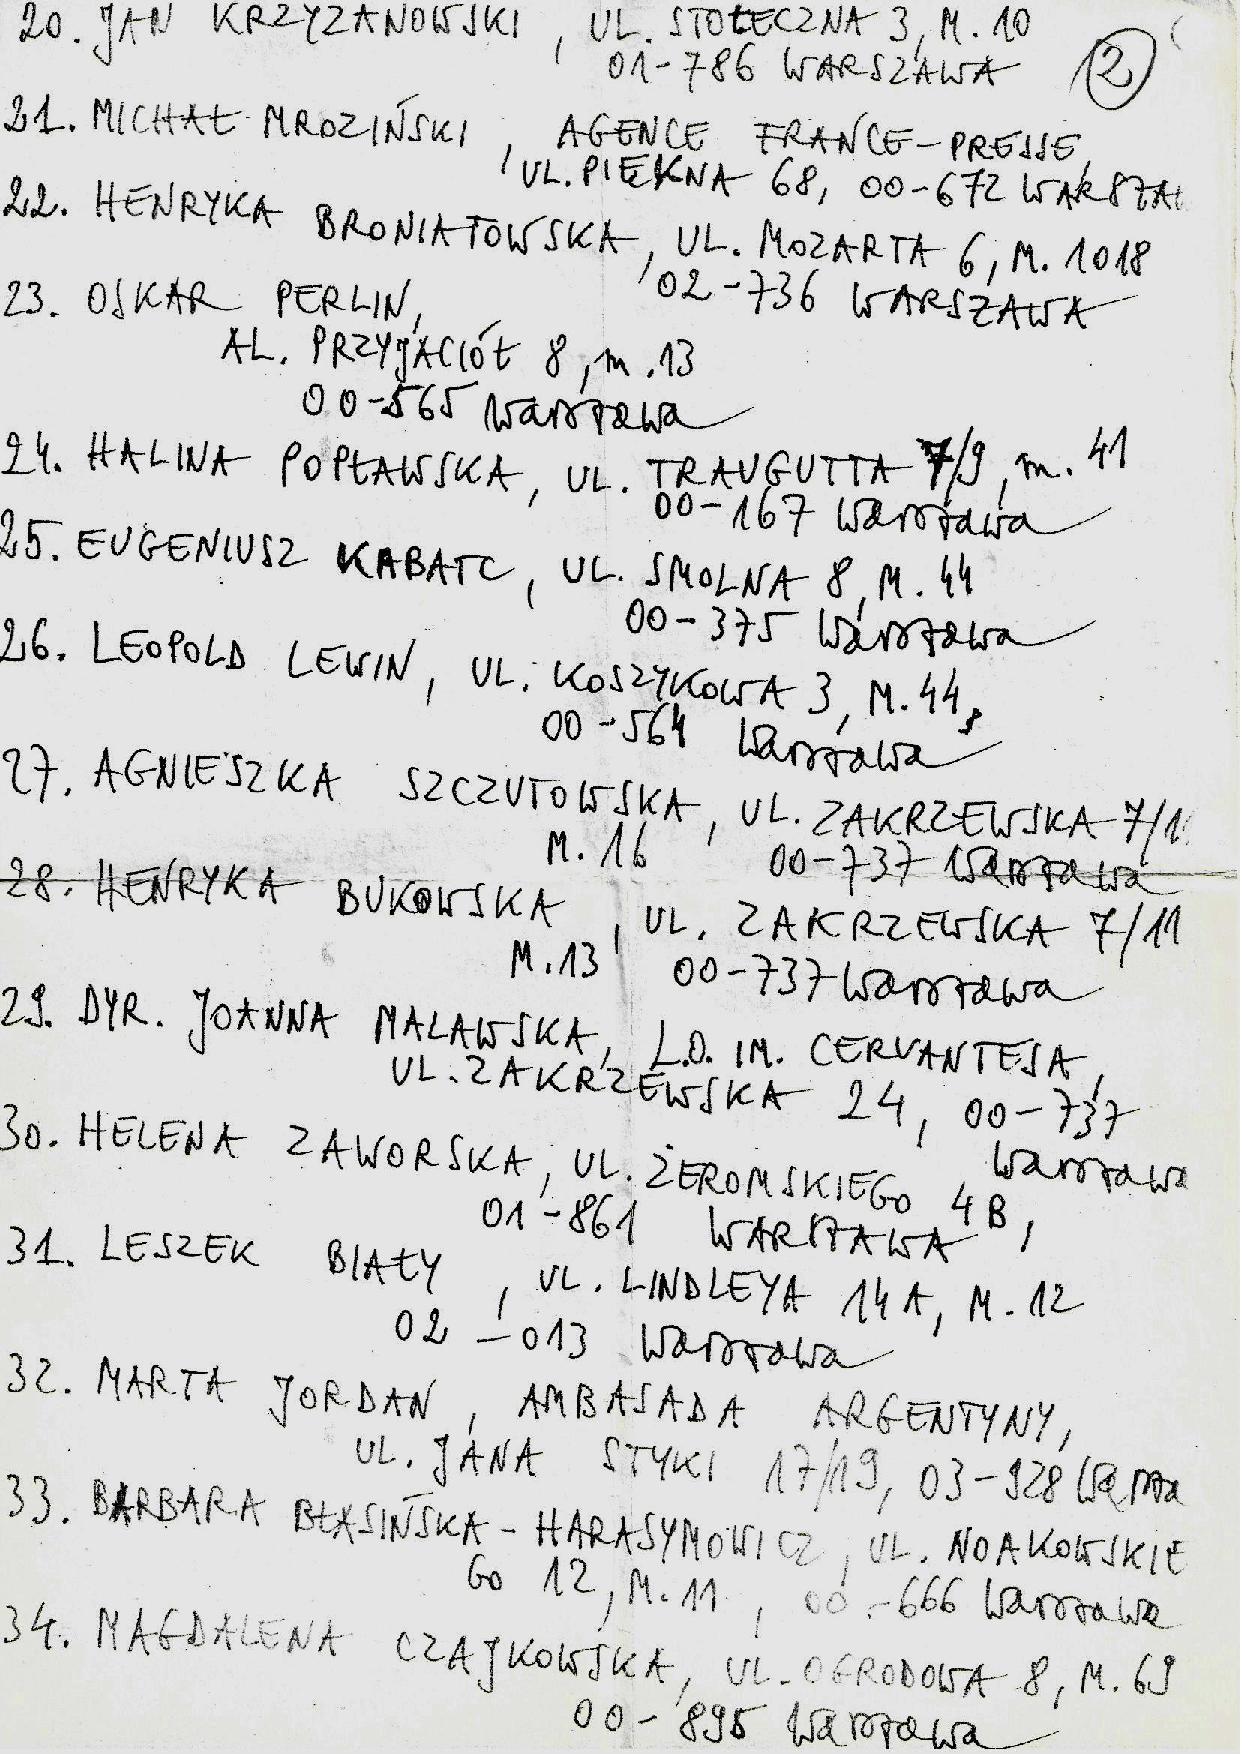 20. JAN KRZYŻANOWSKI, UL. STOŁECZNA 3, M. 10
01-786 WARSZAWA
2
21. MICHAŁ MROZIŃSKI, AGENCE FRANCE-PRESSE,
UL. PIĘKNA 68, 00-672 WARSZA
22. HENRYKA BRONIATOWSKA, UL. MOZARTA 6, M. 1018
02-736 WARSZAWA
23. OSKAR PERLIN,
AL. PRZYJACIÓŁ 8, m. 13
00-565 Warszawa
24. HALINA POPŁAWSKA, UL. TRAUGUTTA 7/9, m. 41
00-167 Warszawa
25. EUGENIUSZ KABATC, UL. SMOLNA 8, M. 44
00-375 Warszawa
26. LEOPOLD LEWIN, UL. KOSZYKOWA 3, M. 44,
00-564 Warszawa
27. AGNIESZKA SZCZUTOWSKA, UL. ZAKRZEWSKA 7/11
M. 16 00-737 Warszawa
28. HENRYKA BUKOWSKA, UL. ZAKRZEWSKA 7/11
M. 13 00-737 Warszawa
29. DYR. JOANNA MALAWSKA, L.O. IM. CERVANTESA,
UL. ZAKRZEWSKA 24, 00-737
Warszawa
30. HELENA ZAWORSKA, UL. ŻEROMSKIEGO 4B,
01-861 WARSZAWA
31. LESZEK BIAŁY, UL. LINDLEYA 14A, M. 12
02-013 Warszawa
32. MARTA JORDAN, AMBASADA ARGENTYNY,
UL. JANA STYKI 17/19, 03-928 Warsza
33. BARBARA BŁASIŃSKA-HARASYMOWICZ, UL. NOAKOWSKIE
GO 12, M. 11, 00-666 Warszawa
34. MAGDALENA CZAJKOWSKA, UL. OGRODOWA 8, M. 69
00-895 Warszawa